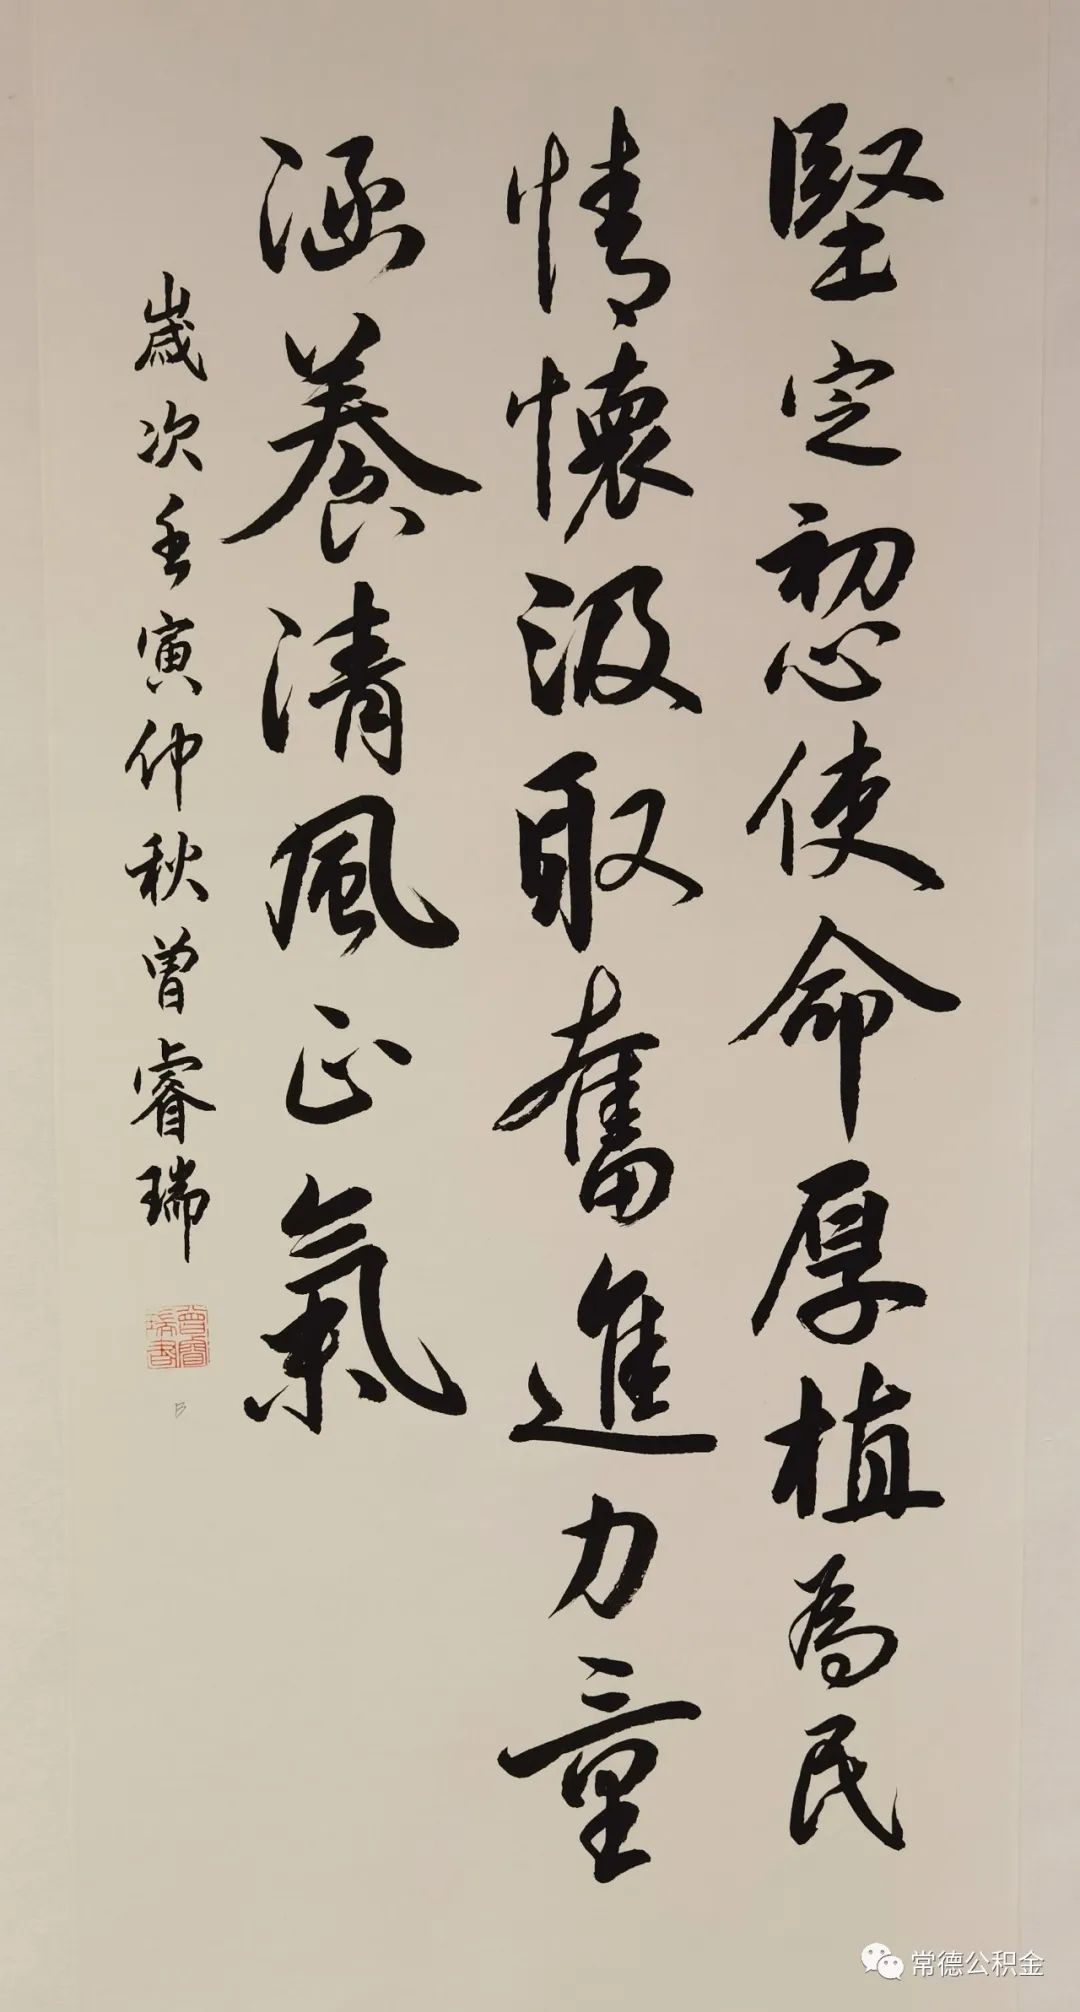 堅定初心使命厚植為民
情懷汲取奮進力量
涵養清風正氣
歲次壬寅仲秋曾睿瑞
曾睿瑞書
常德公积金